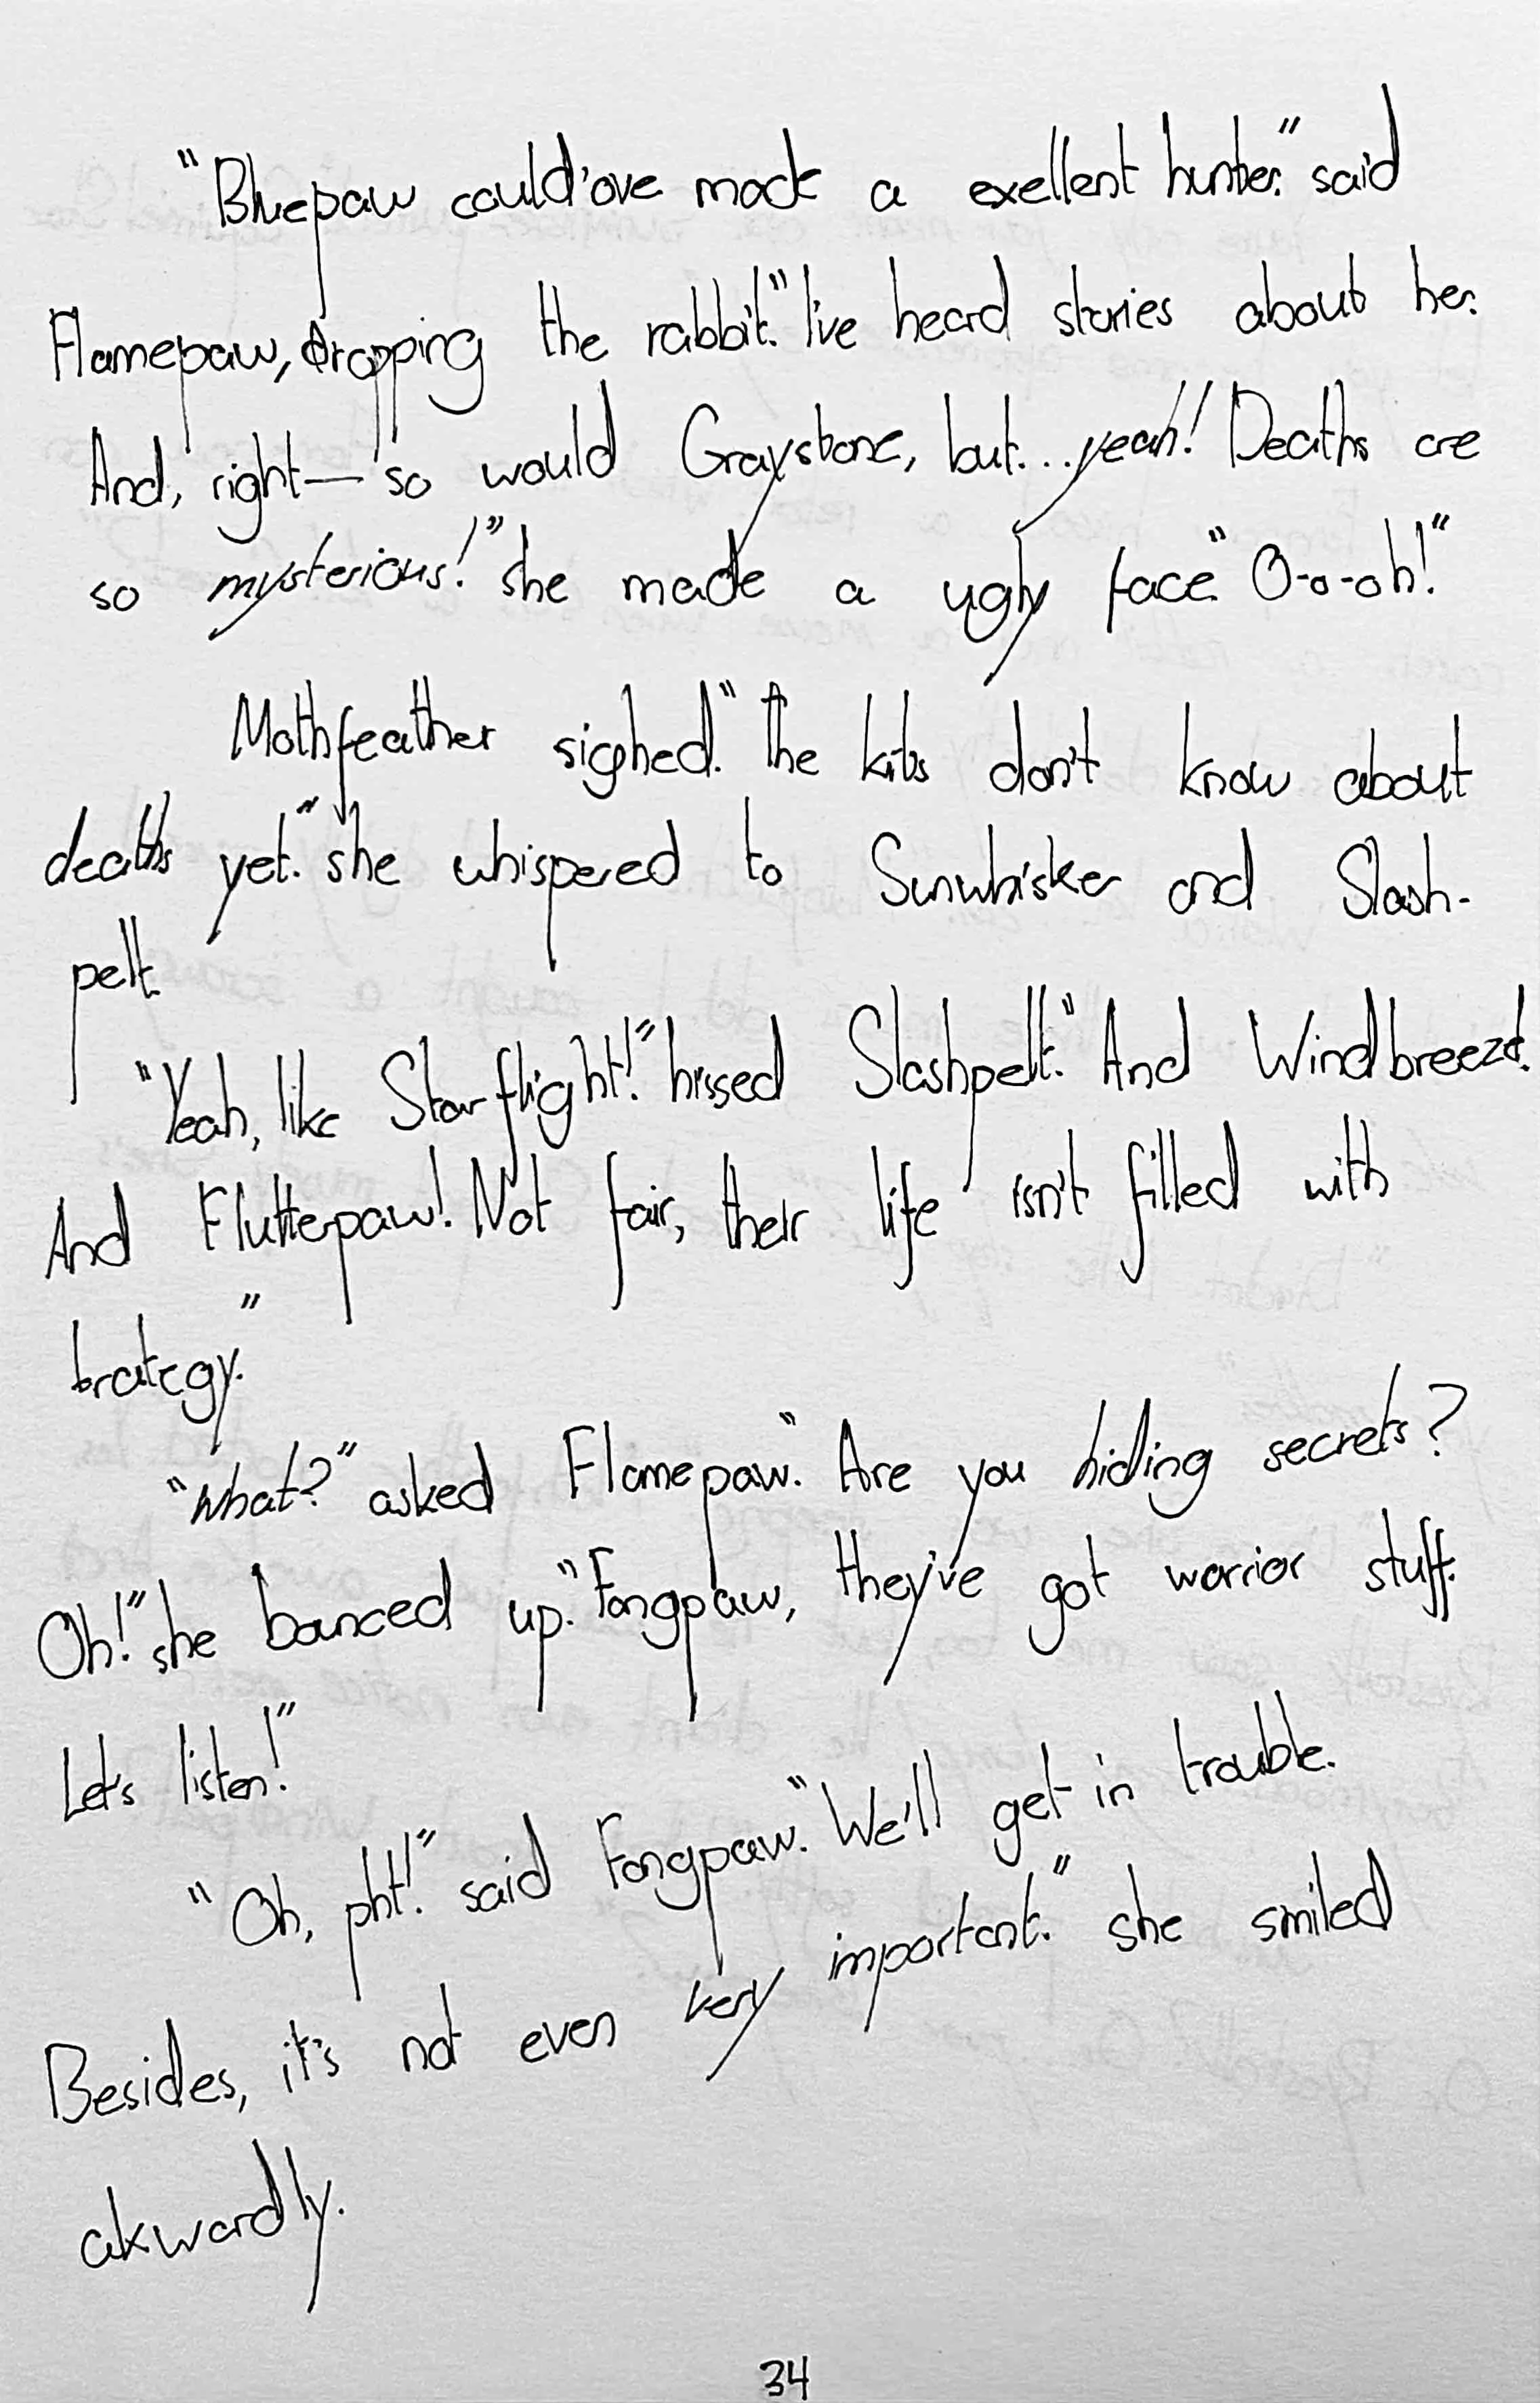 "Bluepaw could'ove made a exellent hunter." said
Flamepaw, dropping the rabbit. "I've heard stories about her.
And, right— so would Graystone, but... yeah! Deaths are
so mysterious!" she made a ugly face. "O-o-oh!"
Mothfeather sighed. "The kits don't know about
deaths yet." she whispered to Sunwhisker and Slash-
pelt.
"Yeah, like Starflight!" hissed Slashpelt. "And Windbreeze!
And Flutterpaw! Not fair, their life isn't filled with
trategy."
"What?" asked Flamepaw. "Are you hiding secrets?
Oh!" she bounced up. "Fangpaw, they've got warrior stuff.
Let's listen!"
"Oh, pht!" said Fangpaw. "We'll get in trouble.
Besides, it's not even very important." she smiled
akwardly.
34